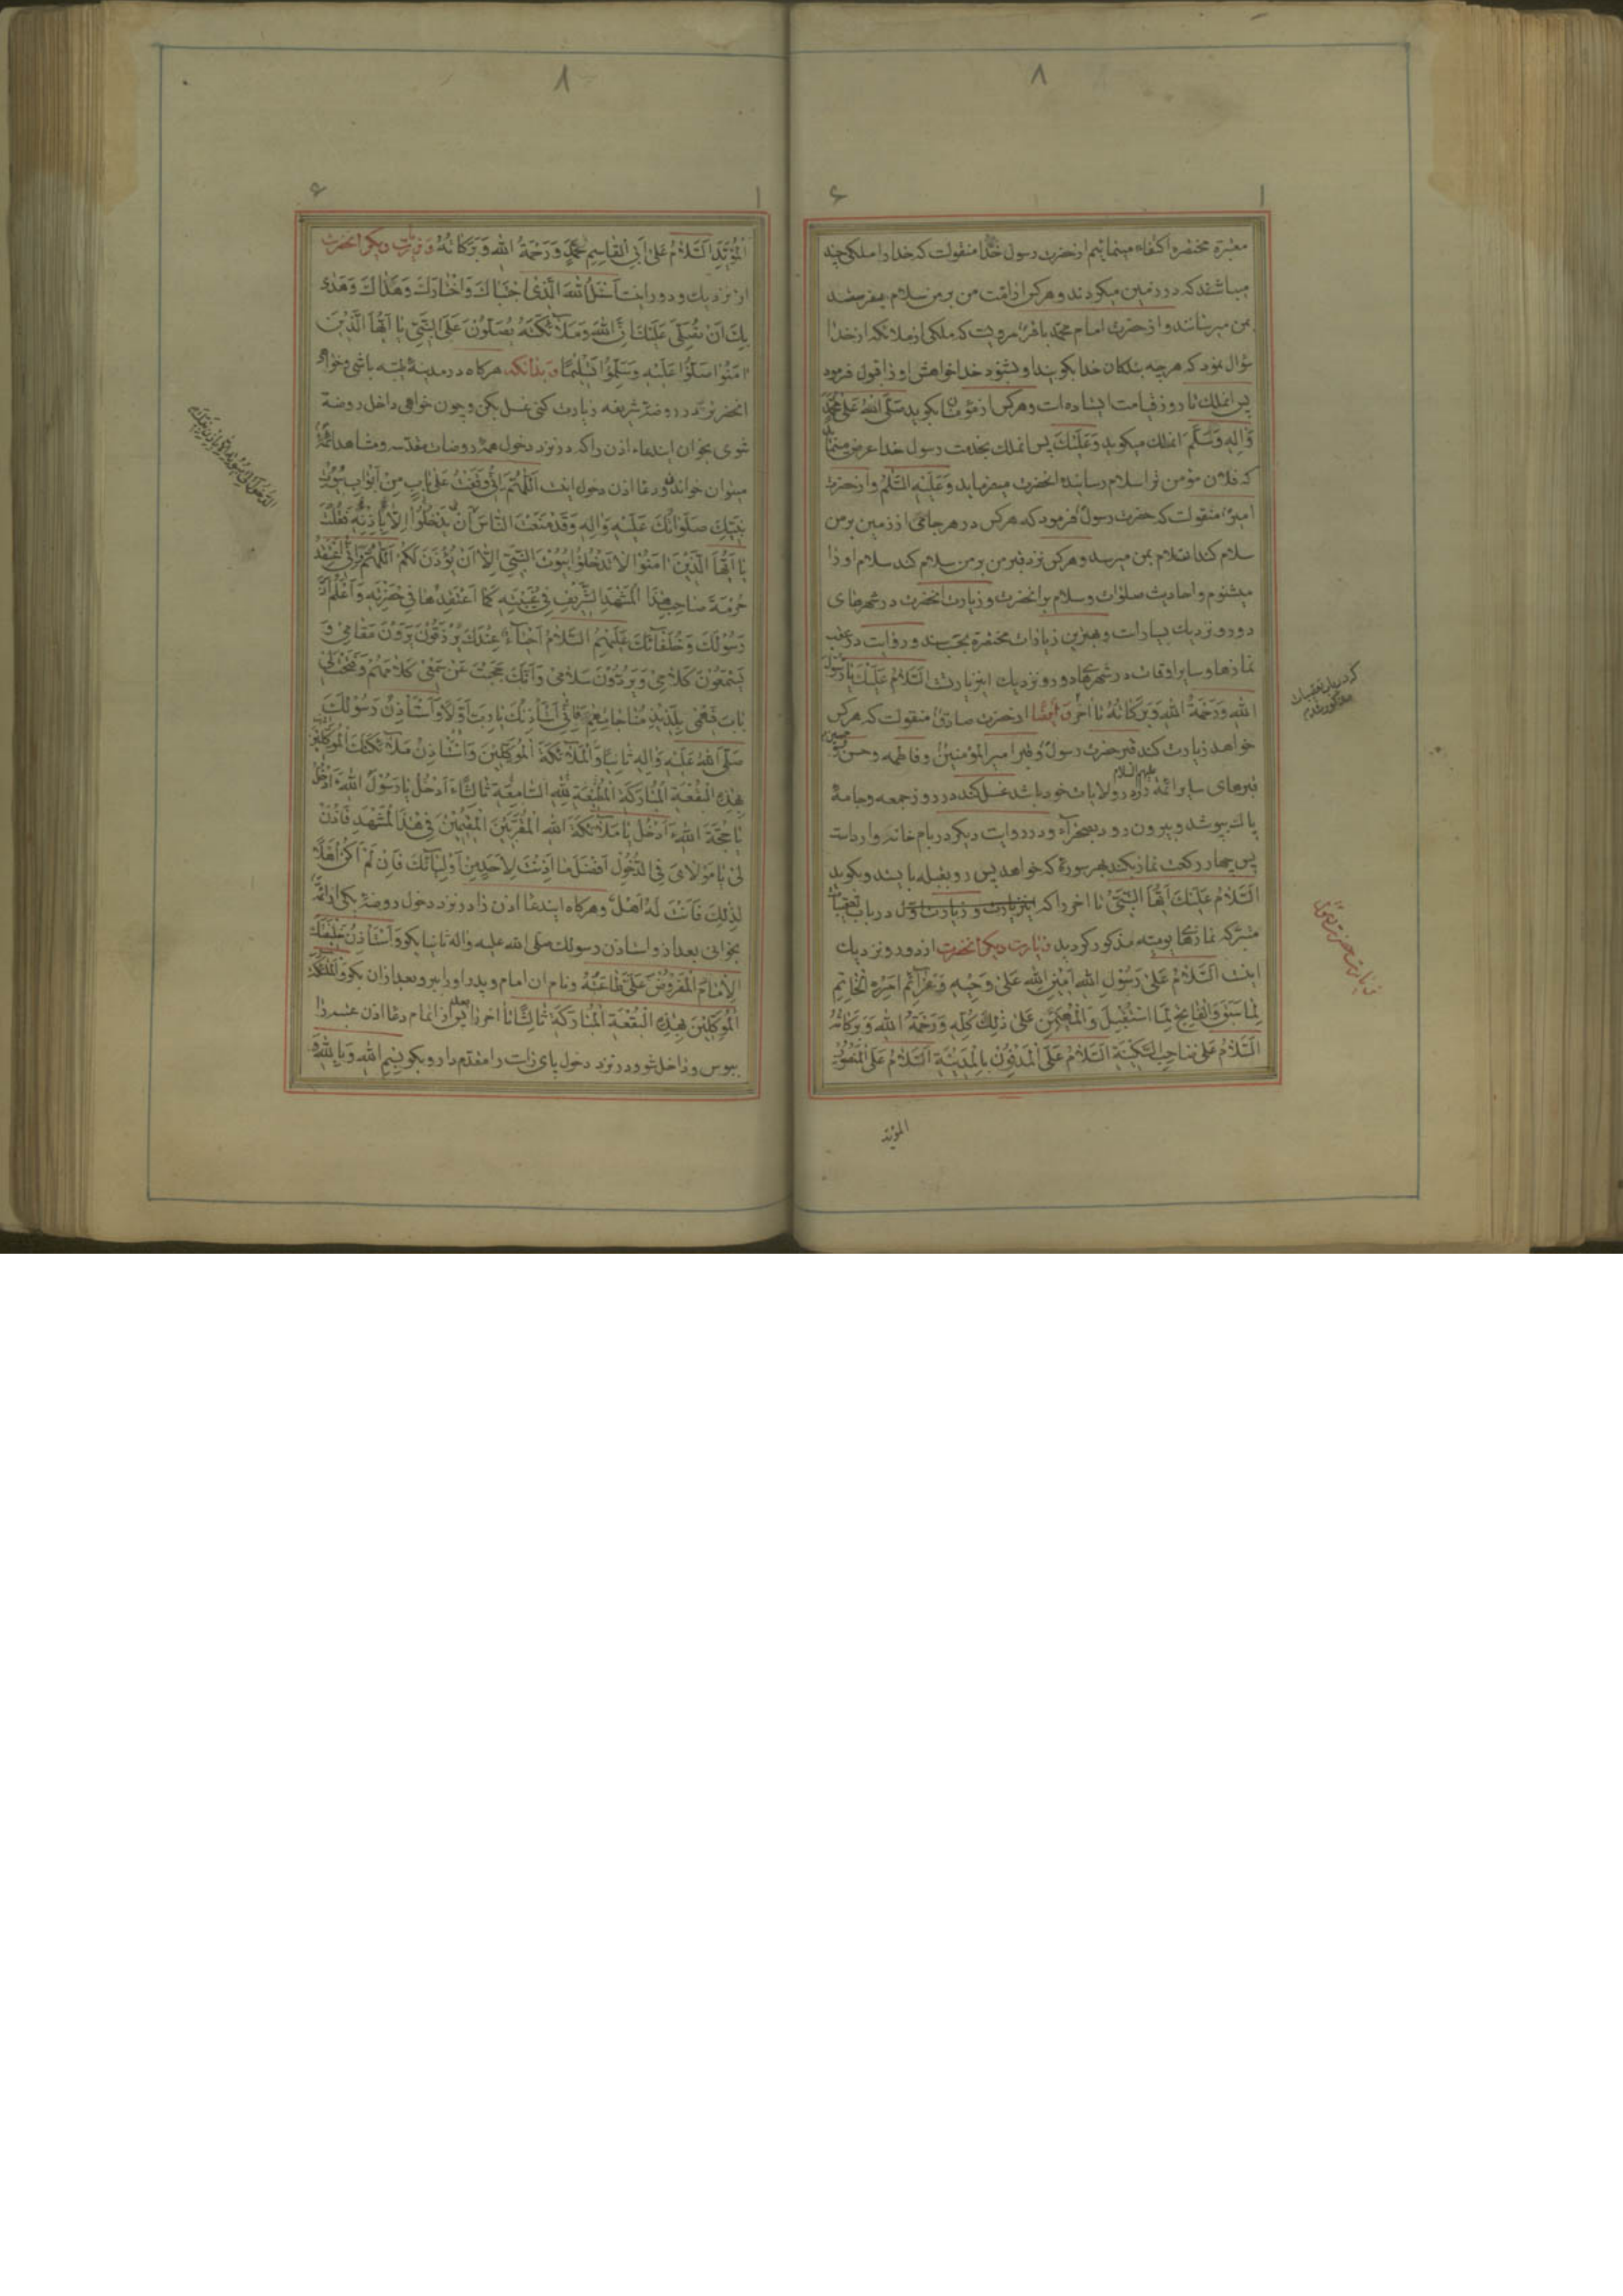 ۸
۱ ۶
معتبرهٔ مختصره اکتفاء مینمائیم از حضرت رسول خدا منقولست که خدا را ملکی چند
میباشند که در زمین میکردند و هرکس از امّت من بر من سلام میفرستد
بمن میرسانند و از حضرت امام محمّد باقر مرویست که ملکی از ملائکه از خدا
سؤال نمود که هرچه بندکان خدا بکویند او بشنود خدا خواهش او را قبول فرمود
پس انملک تا روز قیامت ایستاده است و هرکس از مؤمنان بکوید صَلَّی اللهُ عَلیٰ مُحَمَّدٍ
وَاٰلِهِ وَسَلَّمَ انملک میکوید وَعَلَیْكَ پس انملک بخدمت رسول خدا عرض مینماید
که فلان مؤمن ترا سلام رسانیده انحضرت میفرماید وَعَلَیْهِ السَّلٰامُ و از حضرت
امیر منقولست که حضرت رسول فرمود که هرکس در هر جائی از زمین بر من
سلام کند انسلام بمن میرسد و هرکس نزد قبر من بر من سلام کند سلام او را
میشنوم و احادیث صلوات و سلام بر انحضرت و زیارت انحضرت در شهرهای
دور و نزدیک بسیار است و بهترین زیارات مختصره بحسب سند و روایت در عقب
نمازها و سایر اوقات در شهرهای دور و نزدیک اینزیارت اَلسَّلٰامُ عَلَیْكَ یٰا رَسُولَ
اللهِ وَرَحْمَةُ اللهِ وَبَرَکٰاتُهُ تا اخر وَ ایضًا از حضرت صادق منقولست که هرکس
خواهد زیارت کند قبر حضرت رسول و قبر امیر المؤمنین و فاطمه و حسن و حسین و
قبرهای سایر ائمّه علیهم السلام را و در ولایات خود باشد غسل کند در روز جمعه و جامهٔ
پاک بپوشد و بیرون رود بصحرا و در روایت دیکر در بام خانه وارد است
پس چهار رکعت نماز بکند بهر سورهٔ که خواهد پس رو بقبله بایستد و بکوید
اَلسَّلٰامُ عَلَیْكَ اَیُّهَا النَّبِیُّ تا اخر را که اینزیارت و زیارت اوّل در باب تعقیبات
مشترکه نمازهای یومیّه مذکور کردید زیارت دیکر انحضرت از دور و نزدیک
اینست اَلسَّلٰامُ عَلیٰ رَسُولِ اللهِ اَمٖینِ اللهِ عَلیٰ وَحْیِهِ وَعَزٰائِمِ اَمْرِهِ اَلْخٰاتِمِ
لِمٰا سَبَقَ وَالْفٰاتِحِ لِمَا اسْتُقْبِلَ وَالْمُهَیْمِنِ عَلیٰ ذٰلِكَ کُلِّهِ وَرَحْمَةُ اللهِ وَبَرَکٰاتُهُ
اَلسَّلٰامُ عَلیٰ صٰاحِبِ السَّکٖینَةِ اَلسَّلٰامُ عَلَی الْمَدْفُونِ بِالْمَدٖینَةِ اَلسَّلٰامُ عَلَی الْمَنْصُورِ
المؤیّد
مذکور شدم
زیارت حضرت رسول
۸
۱ ۶
الْمُؤَیَّدِ اَلسَّلٰامُ عَلیٰ اَبِی الْقٰاسِمِ مُحَمَّدٍ وَرَحْمَةُ اللهِ وَبَرَکٰاتُهُ وَ زیارت دیکر انحضرت
از نزدیک و دور اینست اَسْئَلُ اللهَ الَّذِی اجْتَبٰاكَ وَاخْتٰارَكَ وَهَدٰاكَ وَهَدیٰ
بِكَ اَنْ یُصَلِّیَ عَلَیْكَ اِنَّ اللهَ وَمَلٰائِکَتَهُ یُصَلُّونَ عَلَی النَّبِیِّ یٰا اَیُّهَا الَّذٖینَ
اٰمَنُوا صَلُّوا عَلَیْهِ وَسَلِّمُوا تَسْلٖیمًا و بدانکه هرکاه در مدینهٔ طیّبه باشی و خواهی
انحضرت را در روضهٔ شریفه زیارت کنی غسل بکن و چون خواهی داخل روضه
شوی بخوان ایندعاء اذن را که در نزد دخول همهٔ روضات مقدّسه و مشاهد ائمّه
میتوان خواند و دعا اذن دخول اینست اَللّٰهُمَّ اِنّٖی وَقَفْتُ عَلیٰ بٰابٍ مِنْ اَبْوٰابِ بُیُوتِ
نَبِیِّكَ صَلَوٰاتُكَ عَلَیْهِ وَاٰلِهِ وَقَدْ مَنَعْتَ النّٰاسَ اَنْ یَدْخُلُوا اِلّٰا بِاِذْنِهِ فَقُلْتَ
یٰا اَیُّهَا الَّذٖینَ اٰمَنُوا لٰا تَدْخُلُوا بُیُوتَ النَّبِیِّ اِلّٰا اَنْ یُؤْذَنَ لَکُمْ اَللّٰهُمَّ اِنّٖی اَعْتَقِدُ
حُرْمَةَ صٰاحِبِ هٰذَا الْمَشْهَدِ الشَّرٖیفِ فٖی غَیْبَتِهِ کَمٰا اَعْتَقِدُهٰا فٖی حَضْرَتِهِ وَاَعْلَمُ اَنَّ
رَسُولَكَ وَخُلَفٰائَكَ عَلَیْهِمُ السَّلٰامُ اَحْیٰاءٌ عِنْدَكَ یُرْزَقُونَ یَرَوْنَ مَقٰامٖی وَ
یَسْمَعُونَ کَلٰامٖی وَیَرُدُّونَ سَلٰامٖی وَاَنَّكَ حَجَبْتَ عَنْ سَمْعٖی کَلٰامَهُمْ وَفَتَحْتَ لٖی
بٰابَ فَهْمٖی بِلَذٖیذِ مُنٰاجٰاتِهِمْ فَاِنّٖی اَسْتَأْذِنُكَ یٰا رَبِّ اَوَّلًا وَاَسْتَأْذِنُ رَسُولَكَ
صَلَّی اللهُ عَلَیْهِ وَاٰلِهِ ثٰانِیًا وَالْمَلٰائِکَةَ الْمُوَکَّلٖینَ وَاَسْتَأْذِنُ مَلٰائِکَتَكَ الْمُوَکَّلٖینَ
بِهٰذِهِ الْبُقْعَةِ الْمُبٰارَکَةِ الْمُطٖیعَةِ لِلّٰهِ السّٰامِعَةِ ثٰالِثًا ءَاَدْخُلُ یٰا رَسُولَ اللهِ ءَاَدْخُلُ
یٰا حُجَّةَ اللهِ ءَاَدْخُلُ یٰا مَلٰائِکَةَ اللهِ الْمُقَرَّبٖینَ الْمُقٖیمٖینَ فٖی هٰذَا الْمَشْهَدِ فَأْذَنْ
لٖی یٰا مَوْلٰایَ فِی الدُّخُولِ اَفْضَلَ مٰا اَذِنْتَ لِاَحَدٍ مِنْ اَوْلِیٰائِكَ فَاِنْ لَمْ اَکُنْ اَهْلًا
لِذٰلِكَ فَاَنْتَ لَهُ اَهْلٌ و هرکاه ایندعا اذن را در نزد دخول روضهٔ یکی از ائمّه
بخوانی بعد از و استاذن رسولك صلی الله علیه واله ثانیا بکو وَاَسْتَأْذِنُ خَلٖیفَتَكَ
الْاِمٰامَ الْمَفْرُوضَ عَلَیَّ طٰاعَتُهُ و نام ان امام و پدر او را ببر و بعد از ان بکو وَالْمَلٰائِکَةَ
الْمُوَکَّلٖینَ بِهٰذِهِ الْبُقْعَةِ الْمُبٰارَکَةِ ثٰالِثًا تا اخر پس بعد از اتمام دعا اذن عتبه را
ببوس و داخل شو و در نزد دخول پای راست را مقدّم دار و بکو بِسْمِ اللهِ وَبِاللهِ وَ